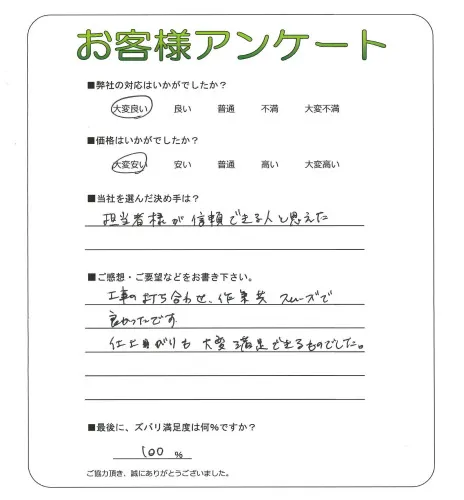 お客様アンケート
■弊社の対応はいかがでしたか？
大変良い 良い 普通 不満 大変不満
■価格はいかがでしたか？
大変安い 安い 普通 高い 大変高い
■当社を選んだ決め手は？
担当者様が信頼できる人と思えた
■ご感想・ご要望などをお書き下さい。
工事の打ち合わせ、作業共スムーズで
良かったです
仕上がりも大変満足できるものでした。
■最後に、ズバリ満足度は何%ですか？
100 %
ご協力頂き、誠にありがとうございました。